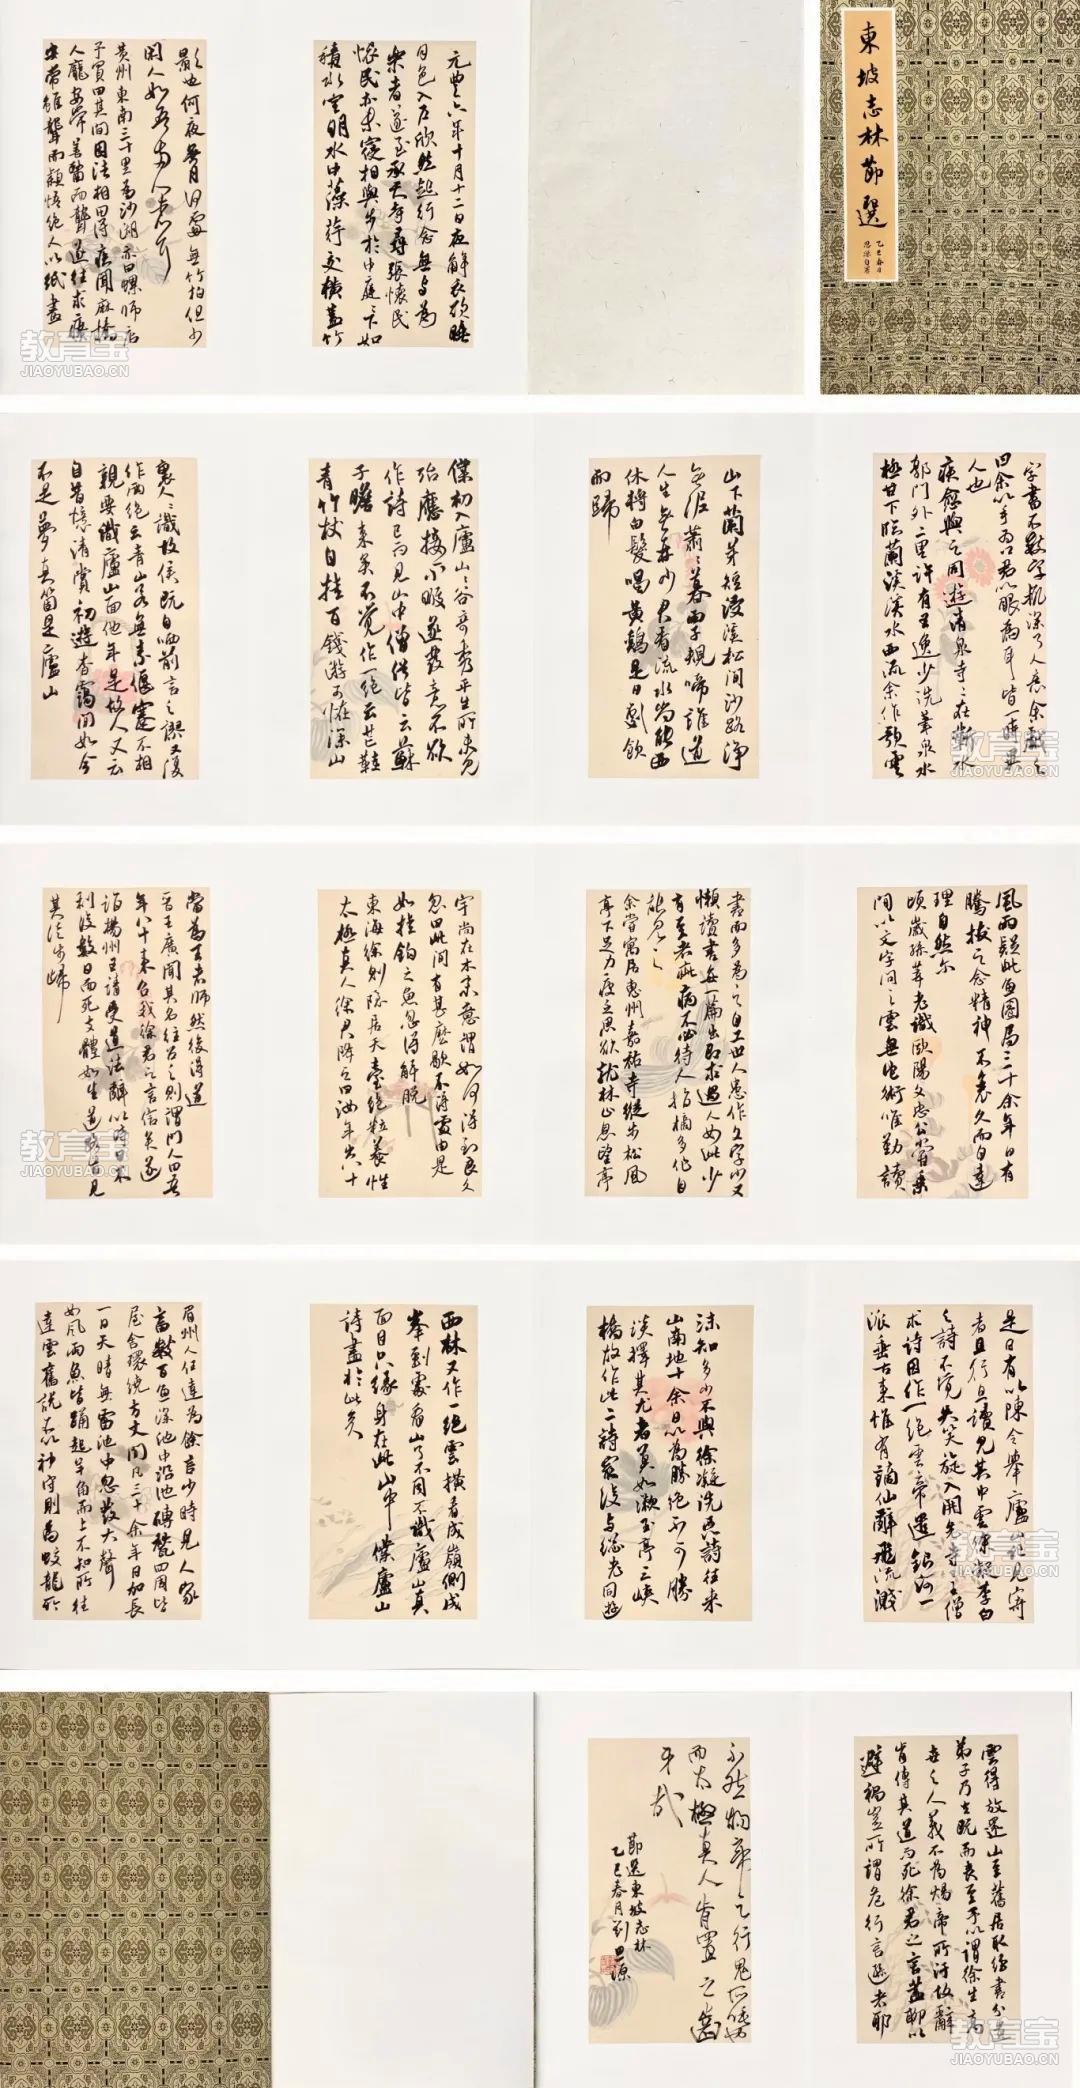 東坡志林節選
乙巳春日
思源自署
元豐六年十月十二日夜解衣欲睡
月色入户欣然起行念無与為
樂者遂至承天寺尋張懷民
懷民亦未寢相與步於中庭下如
積水空明水中藻荇交橫蓋竹
影也何夜無月何處無竹柏但少
閑人如吾兩人者耳
黄州東南三十里為沙湖亦曰螺師店
予買田其間因往相田得疾聞麻橋
人龐安常善醫而聾遂往求療
安常雖聾而穎悟絕人以紙畫
字書不數字輒深了人意余戲之
曰余以手為口君以眼為耳皆一時異
人也
疾愈與之同遊清泉寺〻在蘄水
郭門外二里許有王逸少洗筆泉水
極甘下臨蘭溪溪水西流余作歌雲
山下蘭芽短浸溪松間沙路淨
無泥蕭〻暮雨子規啼誰道
人生無再少君看流水尚能西
休將白髮唱黃鷄是日劇飲
而歸
僕初入廬山〻谷奇秀平生所未見
殆應接不暇遂發意不欲
作詩已而見山中僧俗皆云蘇
子瞻來矣不覺作一絕云芒鞋
青竹杖自挂百錢游可怪深山
裏人〻識故侯既自哂前言之謬又復
作兩絕云青山若無素偃蹇不相
親要識廬山面他年是故人又云
自昔憶清賞初遊杳靄間如今
不是夢真箇是廬山
風雨疑此魚圉局三十余年日有
騰拔之念精神不衰久而自達
理自然尔
頃歲孫莘老識歐陽文忠公嘗乘
間以文字問之雲無它術唯勤讀
書而多為之自工世人患作文字少又
懶讀書每一篇出即求過人如此少
有至者疵病不必待人指摘多作自
能見之
余嘗寓居惠州嘉祐寺縱步松風
亭下足力疲乏思欲就林止息望亭
宇尚在木末意謂如何得到良久
忽曰此間有甚麽歇不得處由是
如挂鈎之魚忽得解脱
東海徐則隱居天臺絕粒養性
太極真人徐君降之曰汝年出八十
當為王者師然後得道
晉王廣聞其名往召之則謂門人曰吾
年八十來召我徐君之言信矣遂
詣揚州王請受道法辭以時日不
利後數日而死支體如生道路皆見
其徒步歸
是日有以陳令舉廬山記見寄
者且行且讀見其中雲徐凝李白
之詩不覺失笑旋入開先寺主僧
求詩因作一絕雲帝遣銀河一
派垂古來惟有謫仙辭飛流濺
沫知多少不與徐凝洗惡詩往來
山南地十余日以為勝絕不可勝
談擇其尤者莫如漱玉亭三峽
橋故作此二詩最後与總老同遊
西林又作一絕雲橫看成嶺側成
峯到處看山了不同不識廬山真
面目只緣身在此山中僕廬山
詩盡於此矣
眉州人任達為餘言少時見人家
畜數百魚深池中沿池磚甃四周皆
屋舍環繞方丈間凡三十余年日加長
一日天晴無雷池中忽發大聲
如風雨魚皆踴起羊角而上不知所往
達雲舊說不以神守則為蛟龍所
雲得放還山至舊居取經書分遺
弟子乃去既而喪至予以謂徐生高
世之人義不為煬帝所汙故辭
肯傳其道而死徐君之言蓋聊以
避禍豈所謂危行言遜者耶
不然煬帝之行鬼所唾也
而太極真人肯置之齒
牙哉
節選東坡志林
乙巳春月劉思源
教育宝
JIAOYUBAO.CN
教育宝
JIAOYUBAO.CN
教育宝
JIAOYUBAO.CN
教育宝
JIAOYUBAO.CN
教育宝
JIAOYUBAO.CN